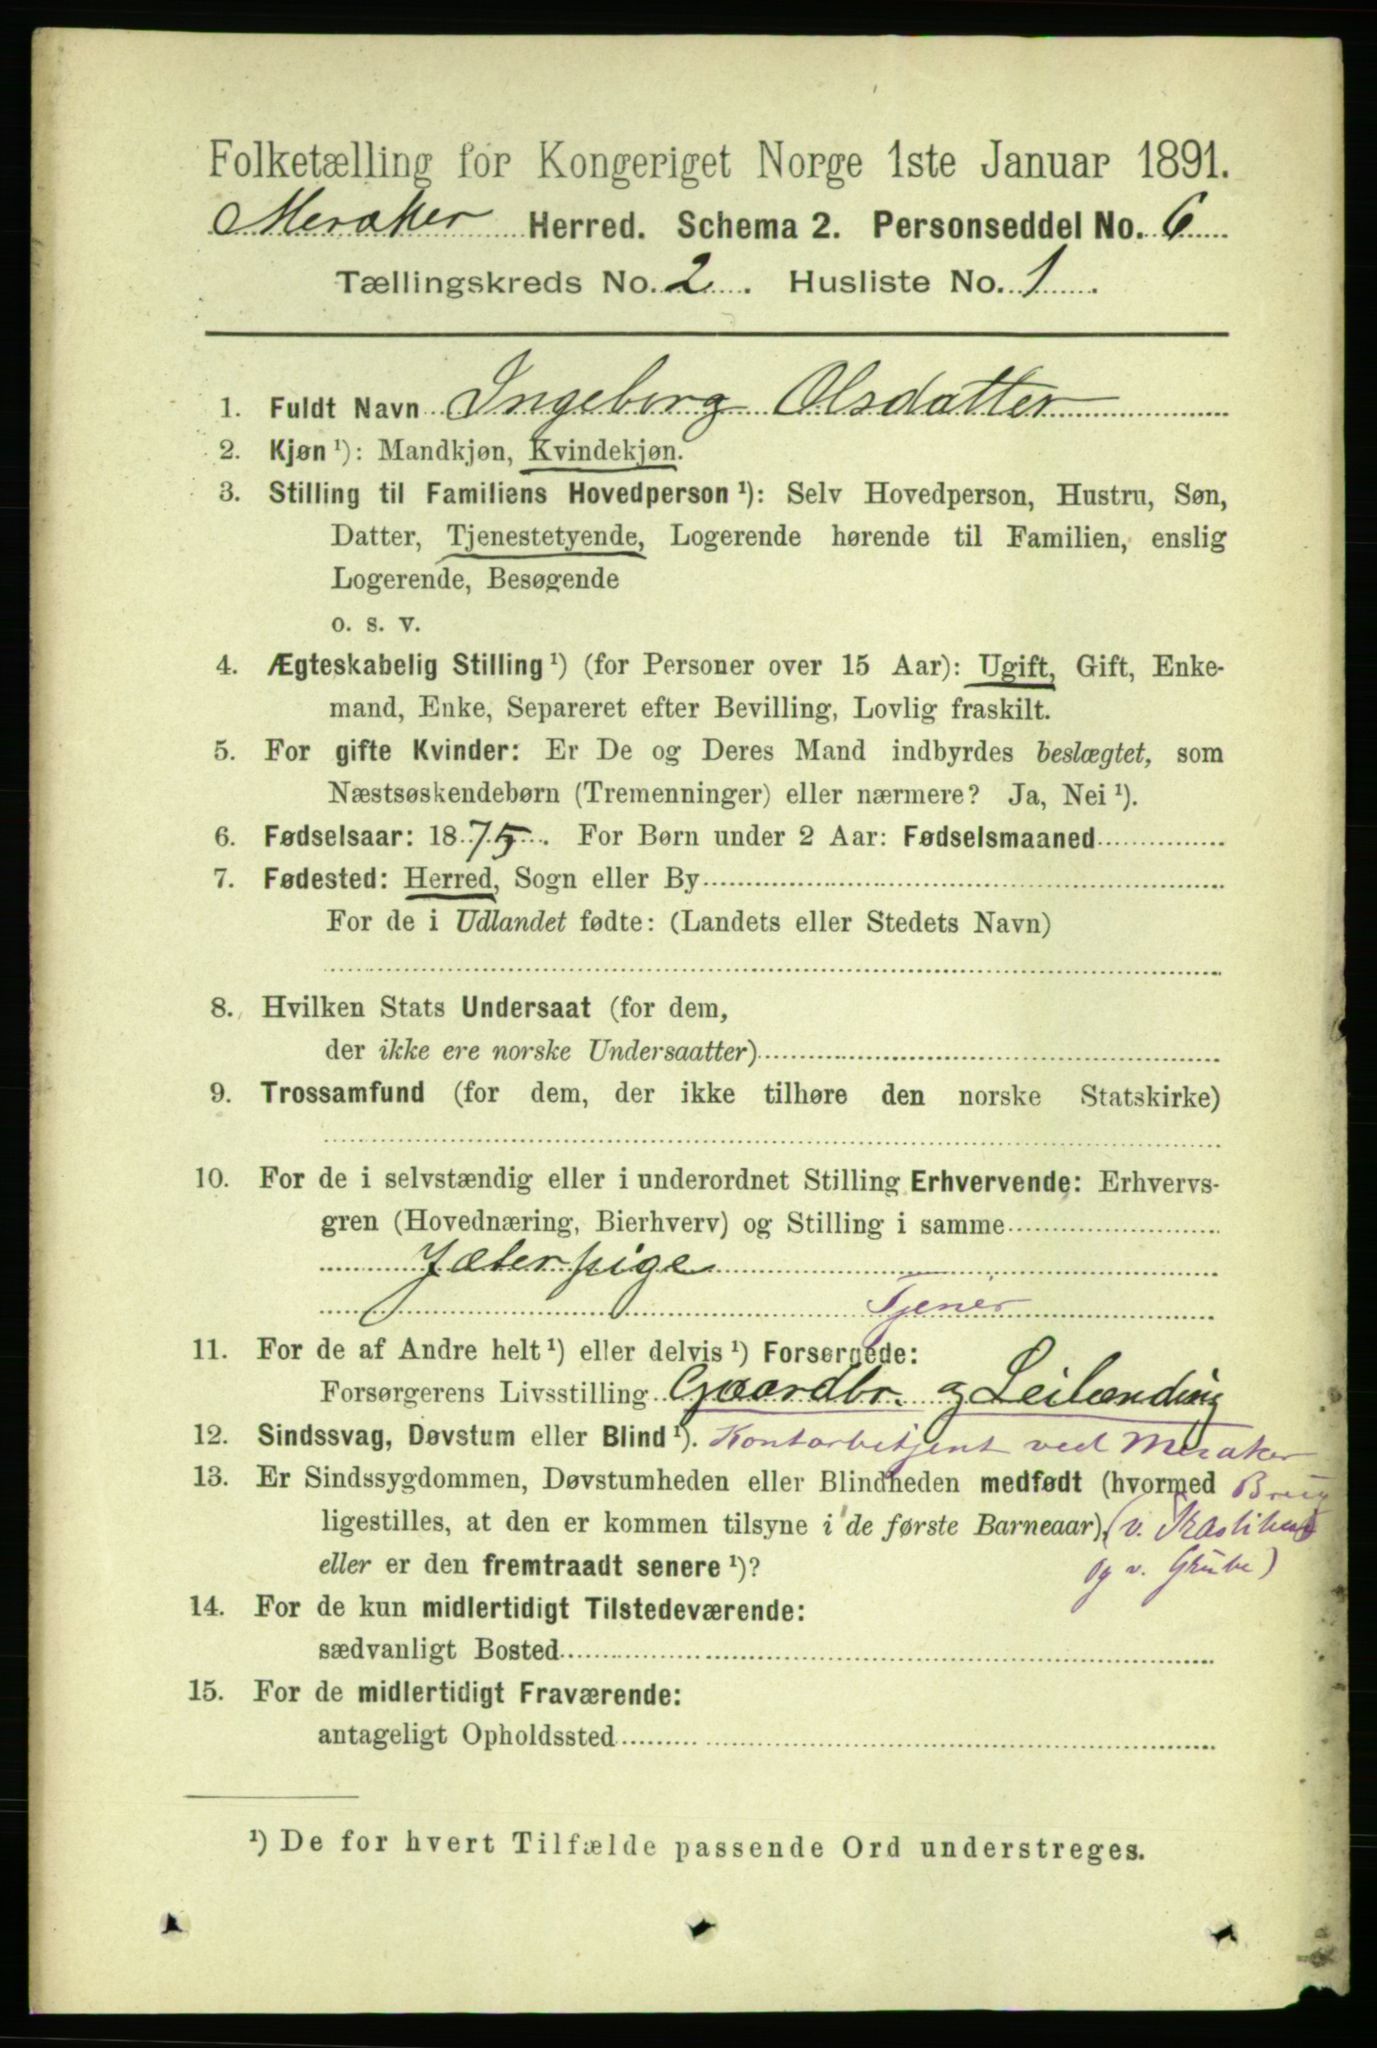 Folketælling for Kongeriget Norge 1ste Januar 1891.
Meraker Herred. Schema 2. Personseddel No. 6
Tællingskreds No. 2. Husliste No. 1.
1. Fuldt Navn Ingeborg Olsdatter
2. Kjøn ¹): Mandkjøn, Kvindekjøn.
3. Stilling til Familiens Hovedperson ¹): Selv Hovedperson, Hustru, Søn,
Datter, Tjenestetyende, Logerende hørende til Familien, enslig
Logerende, Besøgende
o. s. v.
4. Ægteskabelig Stilling ¹) (for Personer over 15 Aar): Ugift, Gift, Enke-
mand, Enke, Separeret efter Bevilling, Lovlig fraskilt.
5. For gifte Kvinder: Er De og Deres Mand indbyrdes beslægtet, som
Næstsøskendebørn (Tremenninger) eller nærmere? Ja, Nei ¹).
6. Fødselsaar: 1875. For Børn under 2 Aar: Fødselsmaaned
7. Fødested: Herred, Sogn eller By
For de i Udlandet fødte: (Landets eller Stedets Navn)
8. Hvilken Stats Undersaat (for dem,
der ikke ere norske Undersaatter)
9. Trossamfund (for dem, der ikke tilhøre den norske Statskirke)
10. For de i selvstændig eller i underordnet Stilling Erhvervende: Erhvervs-
gren (Hovednæring, Bierhverv) og Stilling i samme
Jæterpige
Tjener
11. For de af Andre helt ¹) eller delvis ¹) Forsørgede:
Forsørgerens Livsstilling Gaardbr. og Leilænding
12. Sindssvag, Døvstum eller Blind ¹). Kontorbetjent ved Meraker
13. Er Sindssygdommen, Døvstumheden eller Blindheden medfødt (hvormed Brug
ligestilles, at den er kommen tilsyne i de første Barneaar), (v.
eller er den fremtraadt senere ¹)? og v. Grube)
14. For de kun midlertidigt Tilstedeværende:
sædvanligt Bosted
15. For de midlertidigt Fraværende:
antageligt Opholdssted
¹) De for hvert Tilfælde passende Ord understreges.